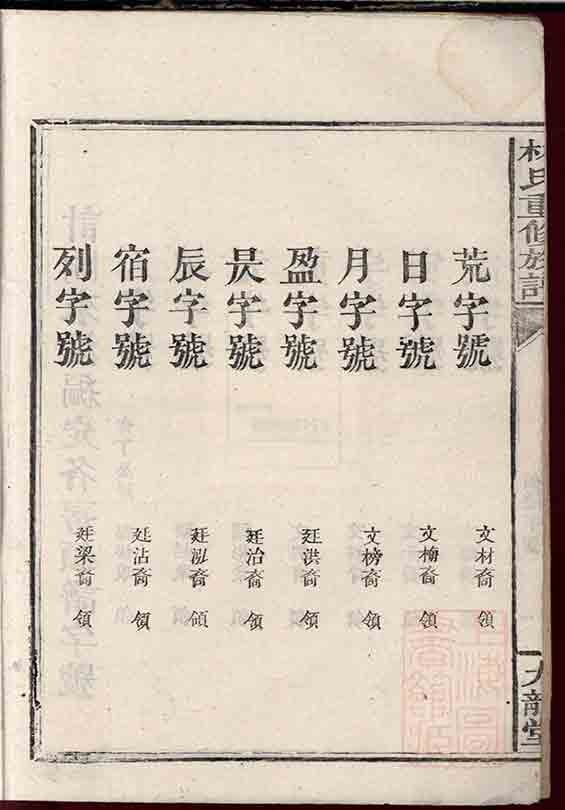 林氏重修族譜
九龍堂
荒字號 文材裔 領
日字號 文梅裔 領
月字號 文榜裔 領
盈字號 廷洪裔 領
昃字號 廷治裔 領
辰字號 廷泓裔 領
宿字號 廷沾裔 領
列字號 廷梁裔 領
上海圖書館藏